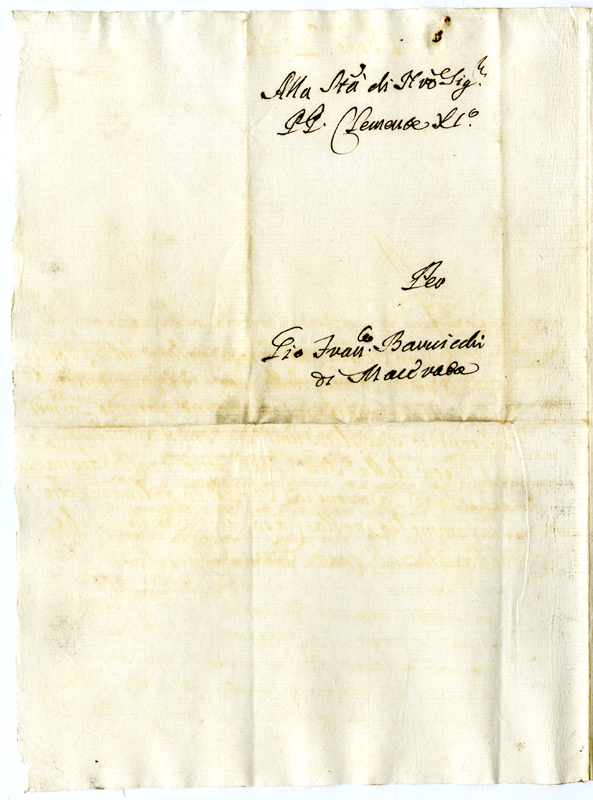 Alla Stà di Nrõ Sigre
PP. Clemente XI°
Per
Gio Franco. Baruicchi
di Macẽrata